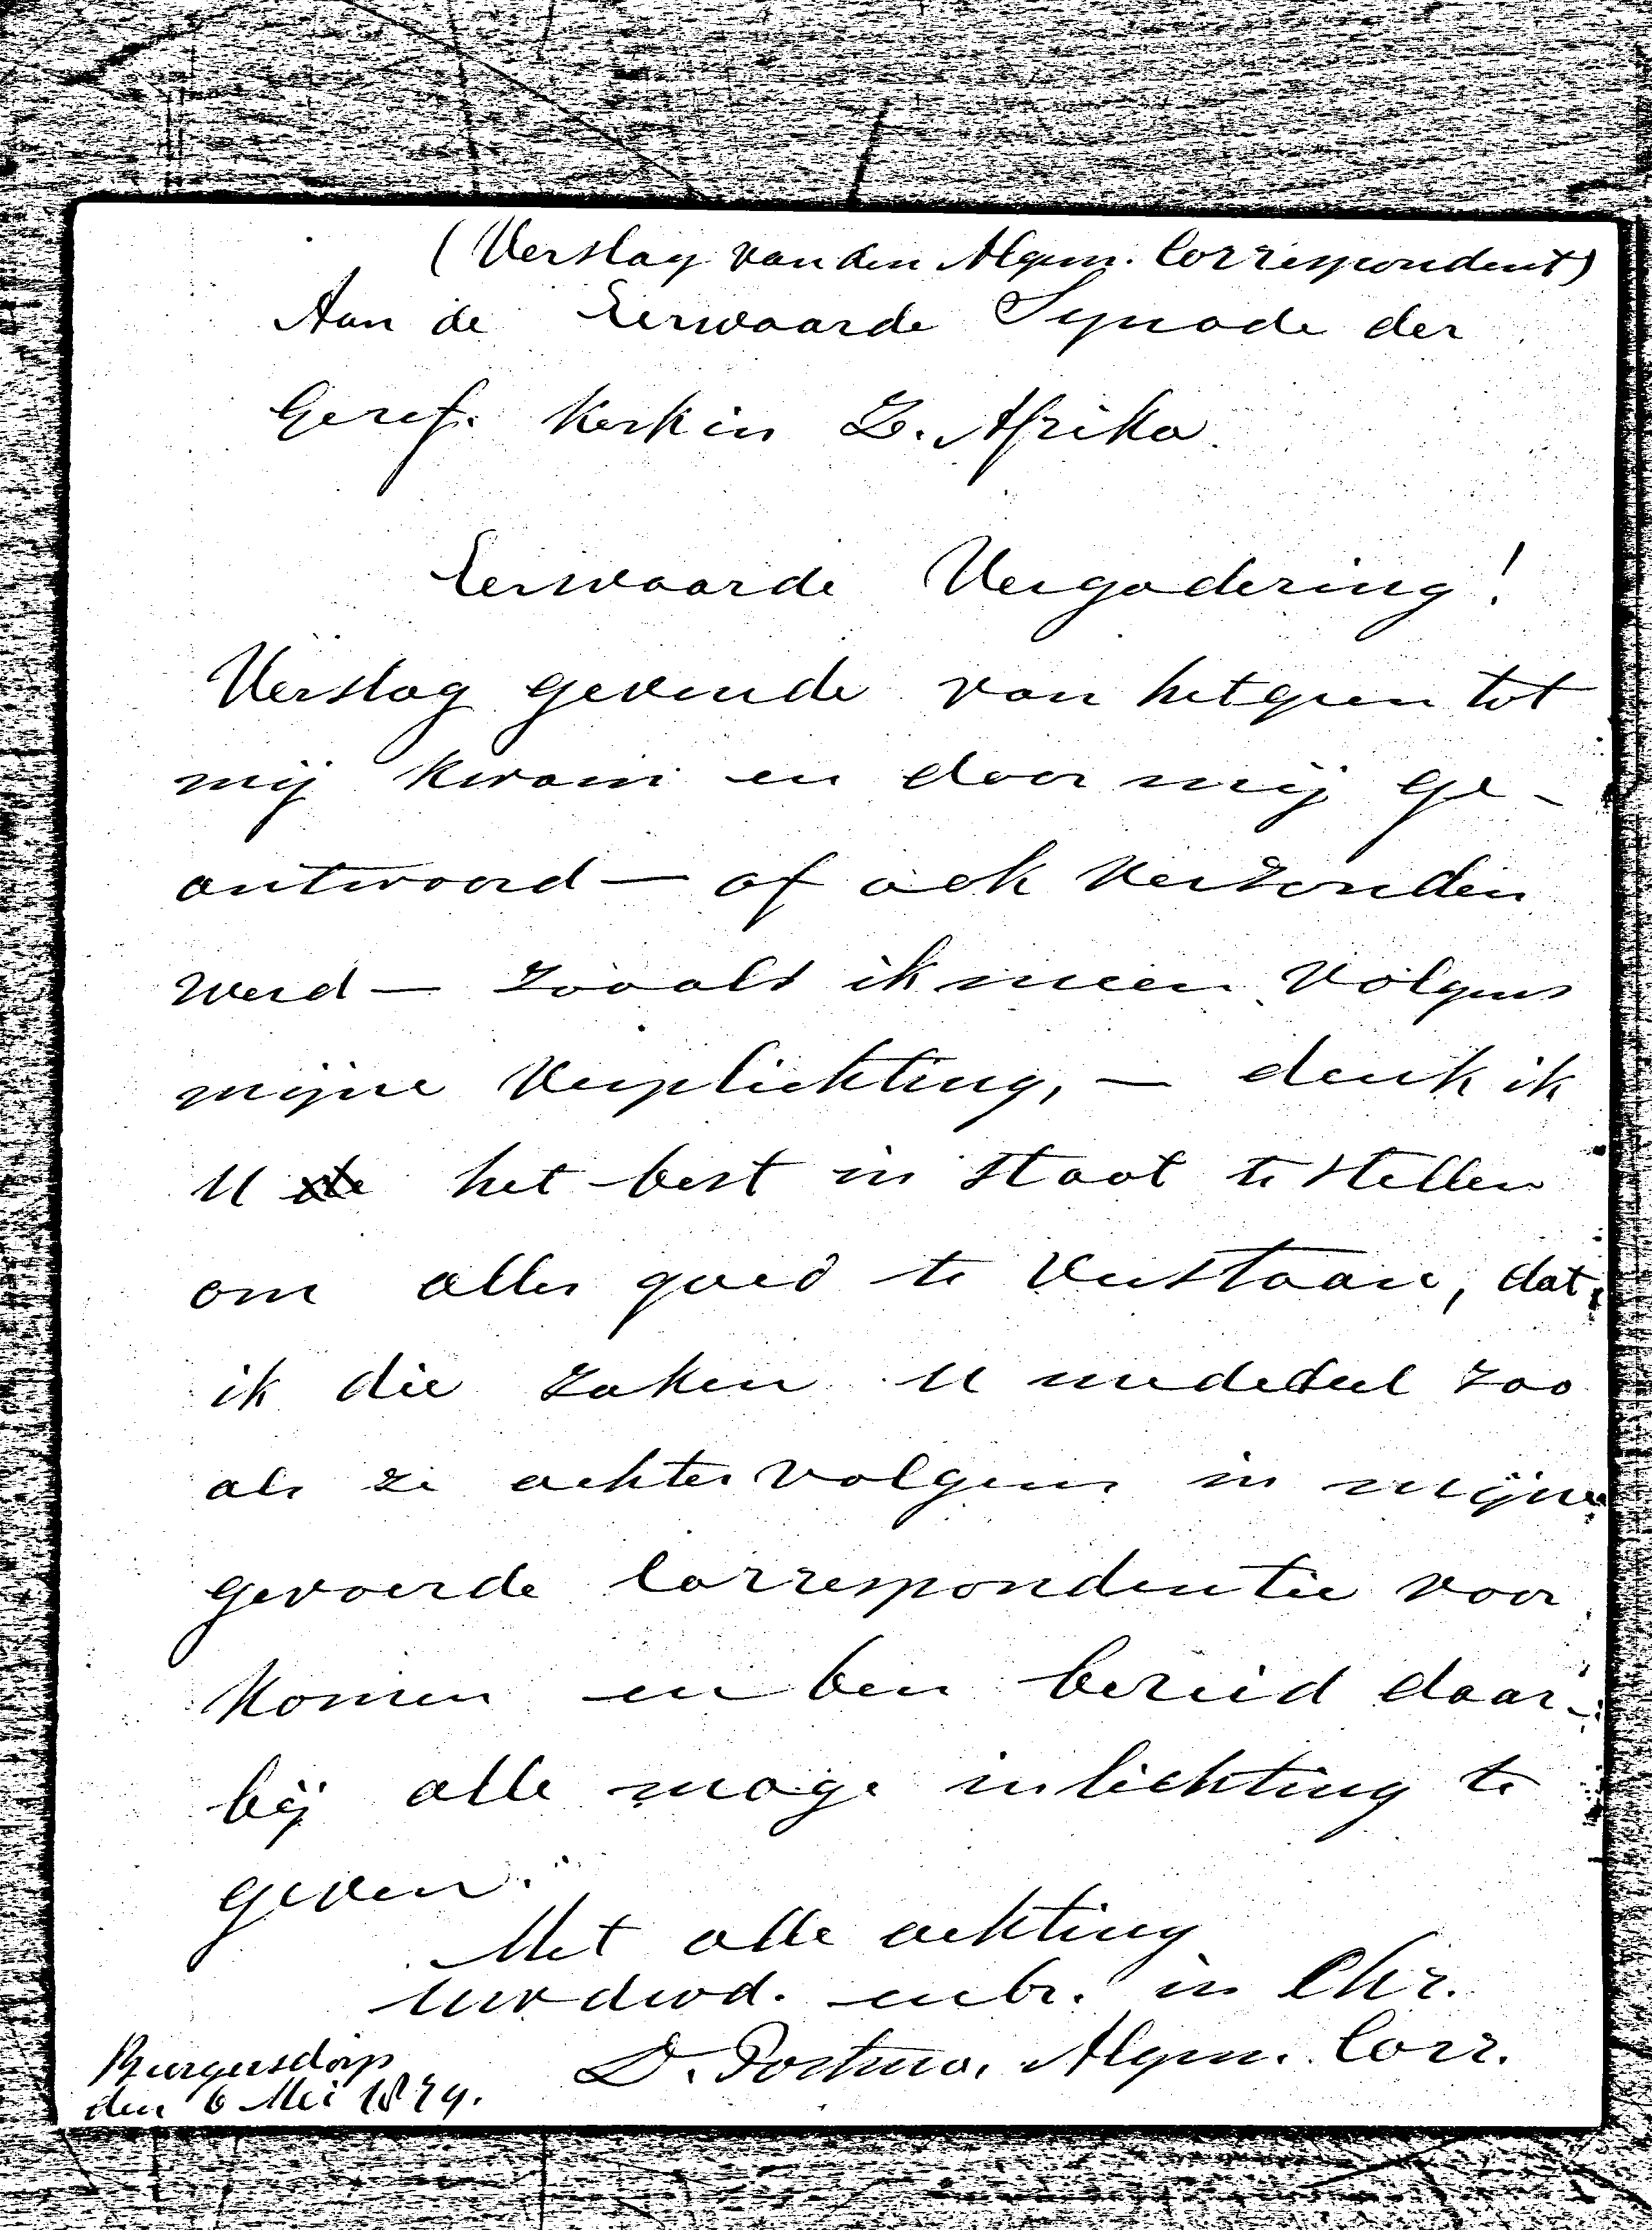 (Verslag van den Algem. Correspondent)
Aan de Eerwaarde Synode der
Geref. Kerk in Z. Afrika.
Eerwaarde Vergadering!
Verslag gevende van hetgeen tot
mij kwam en door mij ge-
antwoord — of ook verzonden
werd — zooals ik meen volgens
mijne verplichting, — denk ik
U het best in staat te stellen
om alles goed te verstaan, dat
ik die zaken U mededeel zoo
als ze achtervolgens in mijne
gevoerde Correspondentie voor
komen en ben bereid daar-
bij alle moge inlichting te
geven.
Met alle achting
Uw dwd. en br. in Chr.
D. Postma, Algem. Corr.
Burgersdorp
den 6 Mei 1879.